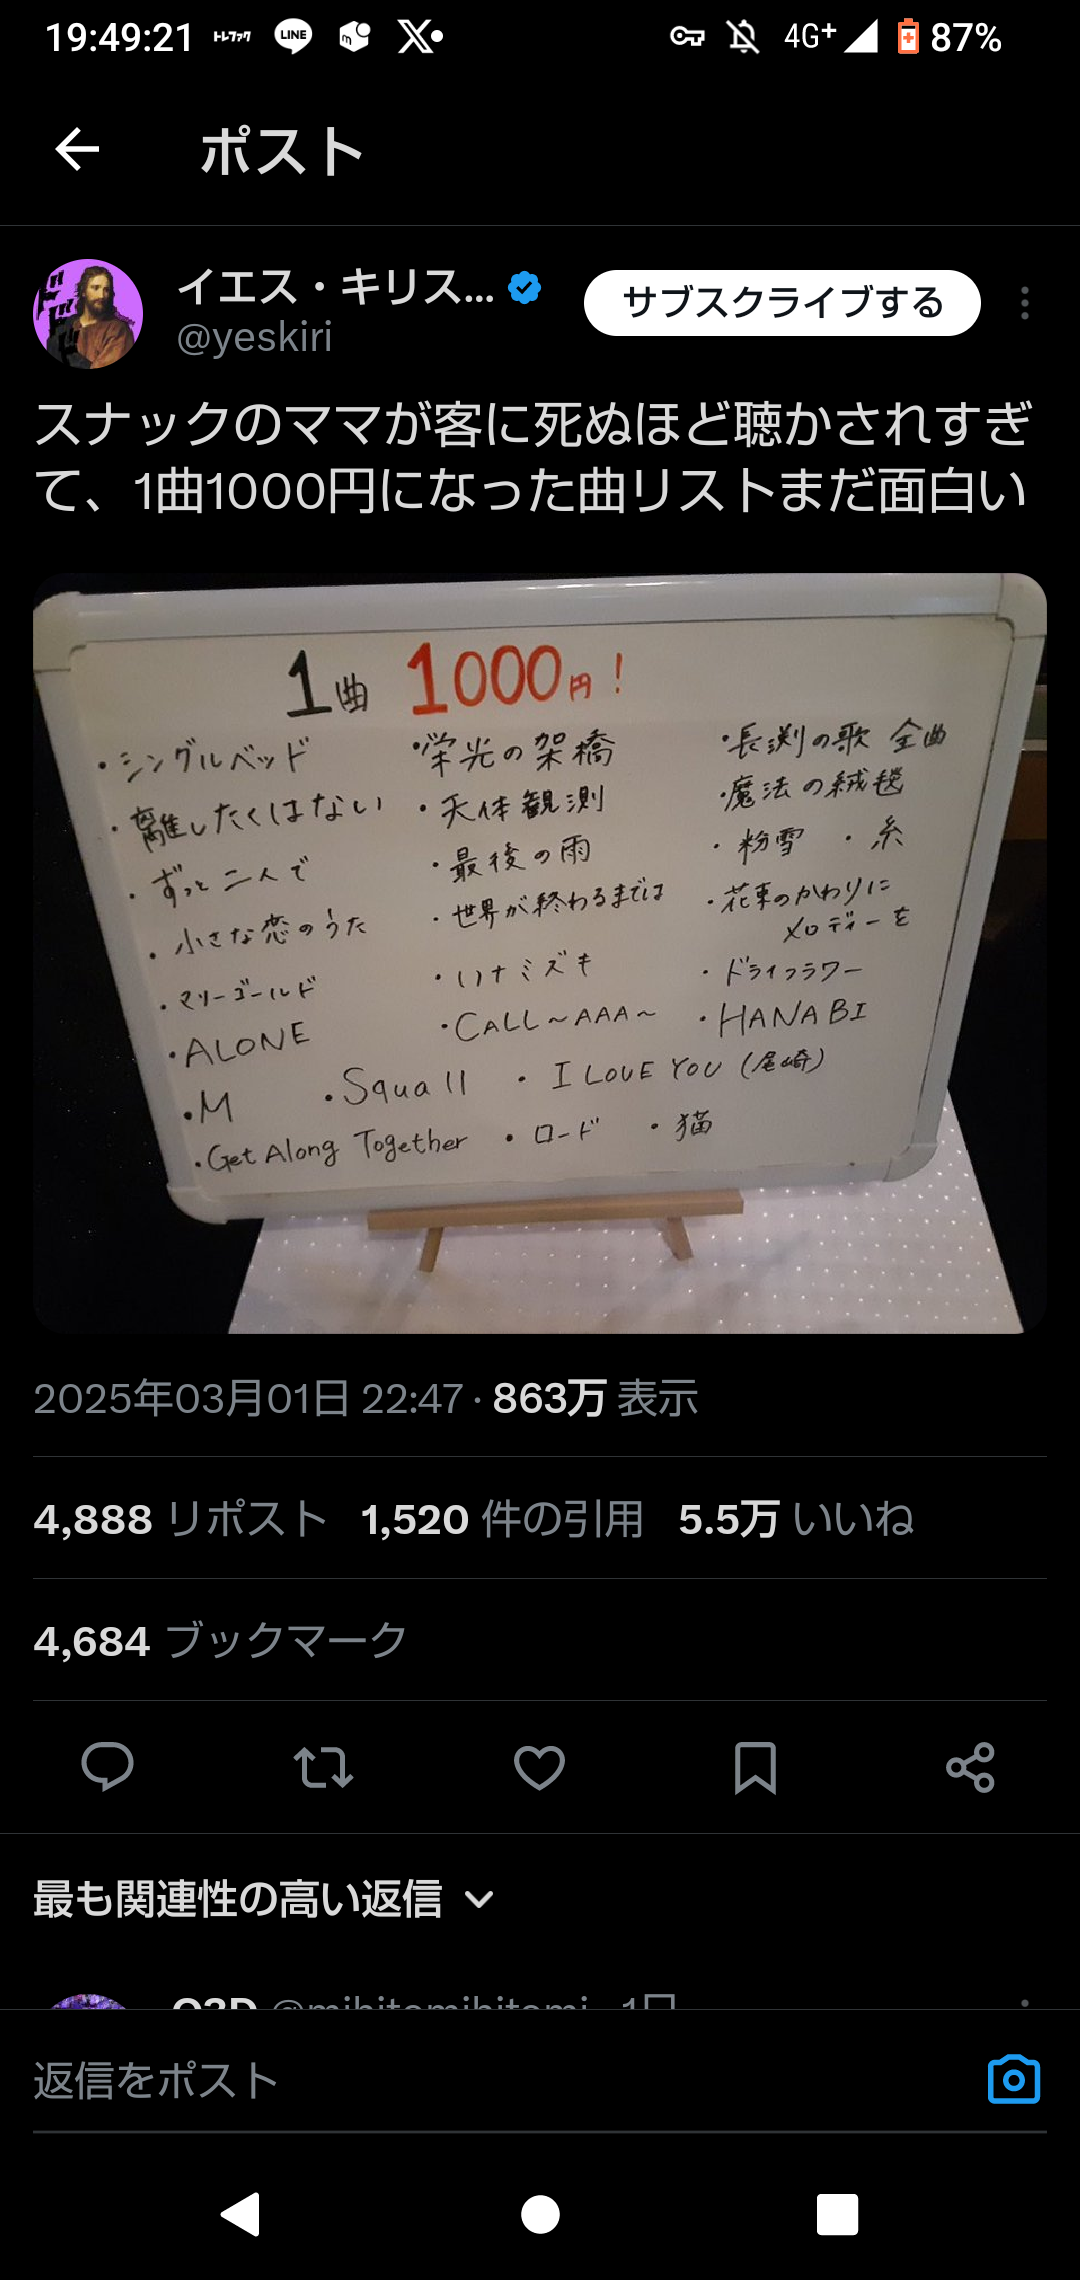 19:49:21 トレファク LINE 4G+ 87%
ポスト
イエス・キリス... サブスクライブする
@yeskiri
スナックのママが客に死ぬほど聴かされすぎ
て、1曲1000円になった曲リストまだ面白い
1曲 1000円!
・シングルベッド
・離したくはない
・ずっと二人で
・小さな恋のうた
・マリーゴールド
・ALONE
・栄光の架橋
・天体観測
・最後の雨
・世界が終わるまでは
・ハナミズキ
・CALL～AAA～
・長渕の歌 全曲
・魔法の絨毯
・粉雪 ・糸
・花束のかわりに
メロディーを
・ドライフラワー
・HANABI
・M ・Squall ・I LOVE YOU (尾崎)
・Get Along Together ・ロード ・猫
2025年03月01日 22:47 · 863万 表示
4,888 リポスト 1,520 件の引用 5.5万 いいね
4,684 ブックマーク
最も関連性の高い返信
@mihitomihitomi · 1日
返信をポスト